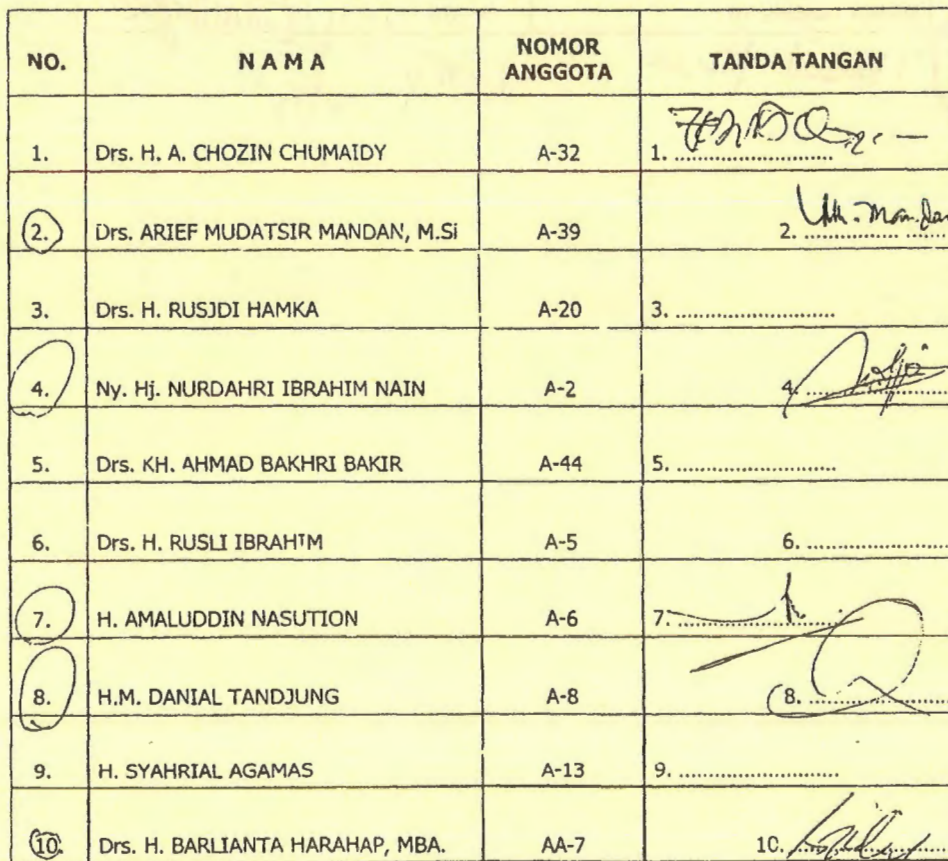 NO. N A M A NOMOR ANGGOTA TANDA TANGAN
1. Drs. H. A. CHOZIN CHUMAIDY A-32 1. ..........................
2. Drs. ARIEF MUDATSIR MANDAN, M.Si A-39 2. ..........................
3. Drs. H. RUSJDI HAMKA A-20 3. ..........................
4. Ny. Hj. NURDAHRI IBRAHIM NAIN A-2 4. ..........................
5. Drs. KH. AHMAD BAKHRI BAKIR A-44 5. ..........................
6. Drs. H. RUSLI IBRAHIM A-5 6. ..........................
7. H. AMALUDDIN NASUTION A-6 7. ..........................
8. H.M. DANIAL TANDJUNG A-8 8. ..........................
9. H. SYAHRIAL AGAMAS A-13 9. ..........................
10. Drs. H. BARLIANTA HARAHAP, MBA. AA-7 10. ..........................